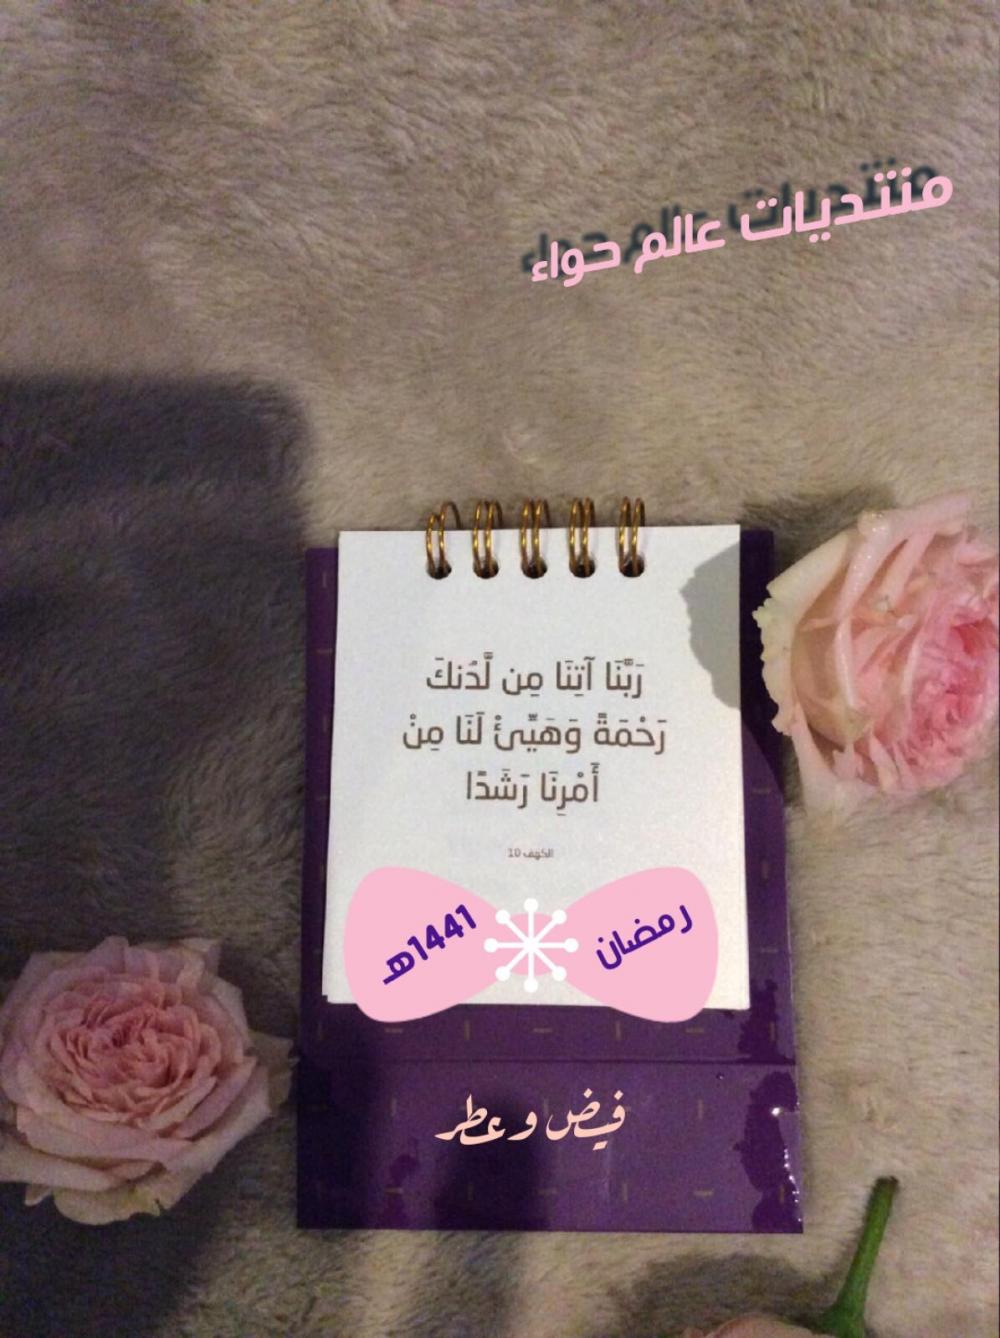 منتديات عالم حواء
رَبَّنَا آتِنَا مِن لَّدُنكَ
رَحْمَةً وَهَيِّئْ لَنَا مِنْ
أَمْرِنَا رَشَدًا
الكهف 10
رمضان 1441هـ
فيض و عطر